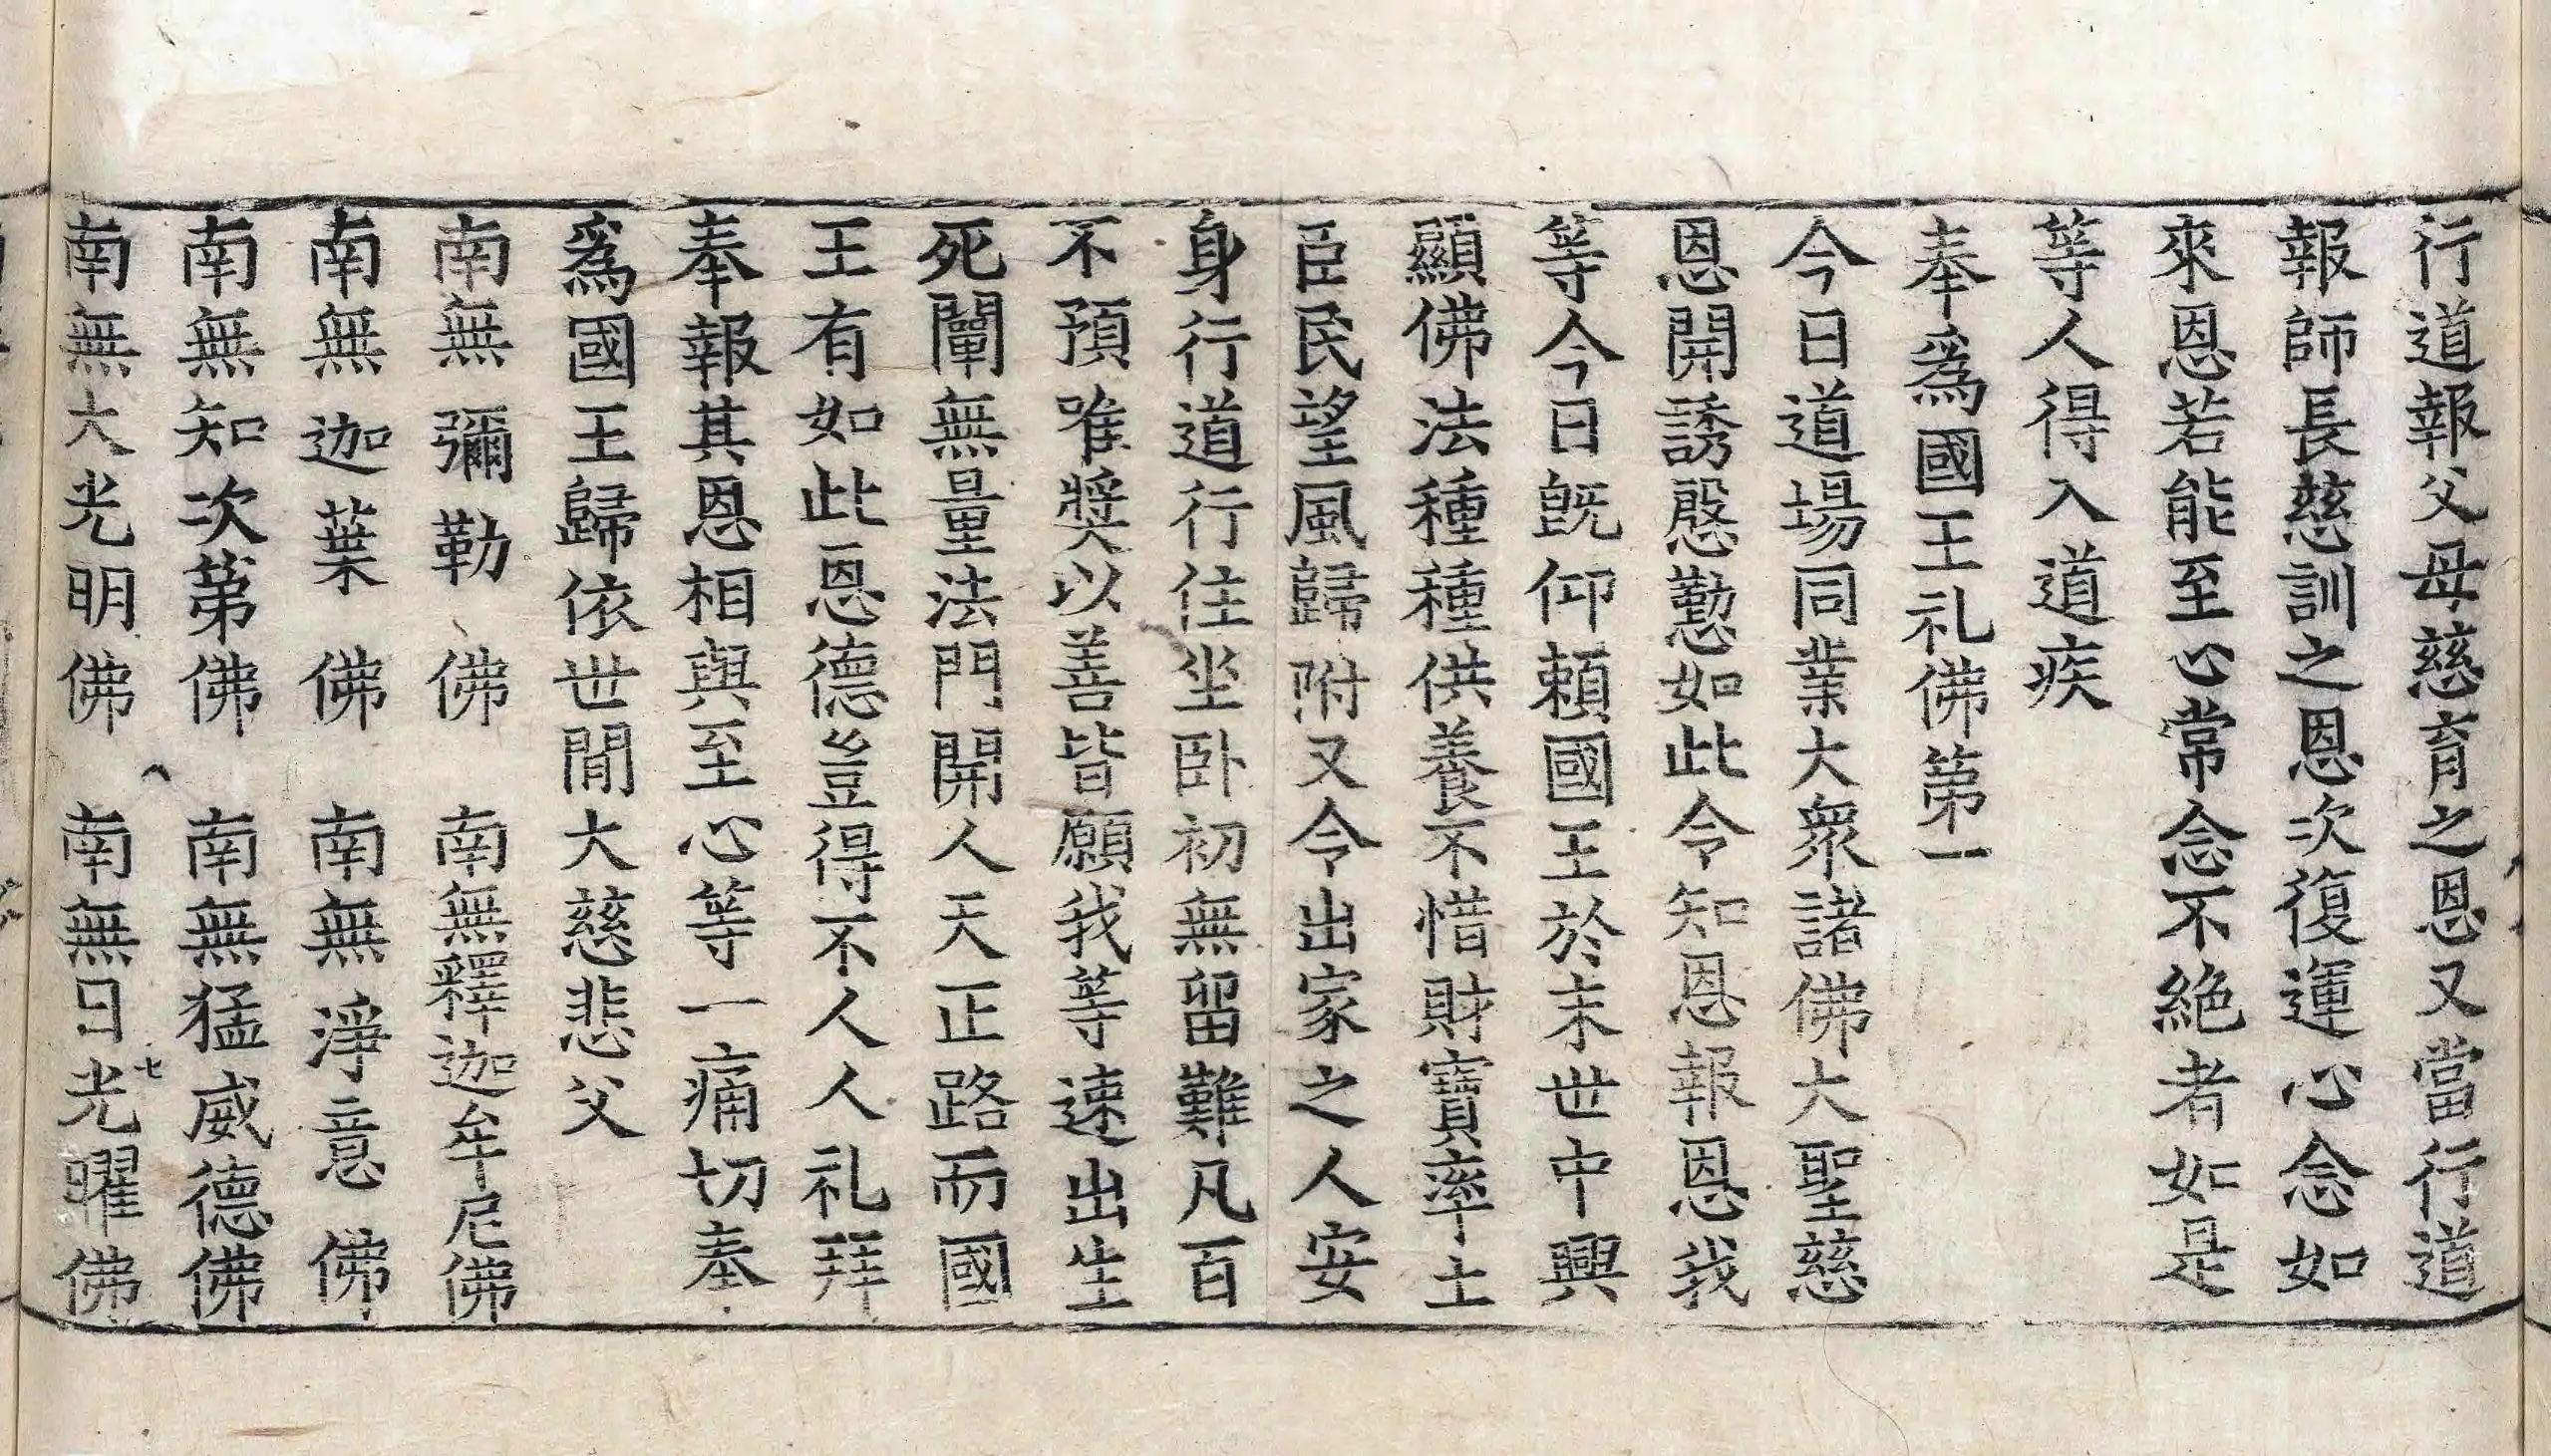 行道報父母慈育之恩又當行道
報師長慈訓之恩次復運心念如
來恩若能至心常念不絕者如是
等人得入道疾
奉爲國王礼佛第一
今日道場同業大衆諸佛大聖慈
恩開誘慇懃如此令知恩報恩我
等今日旣仰賴國王於末世中興
顯佛法種種供養不惜財寶率土
臣民望風歸附又令出家之人安
身行道行住坐卧初無留難凡百
不預唯獎以善皆願我等速出生
死闡無量法門開人天正路而國
王有如此恩德豈得不人人礼拜
奉報其恩相與至心等一痛切奉
爲國王歸依世閒大慈悲父
南無彌勒佛 南無釋迦牟尼佛
南無迦葉佛 南無淨意佛
南無知次第佛 南無猛威德佛
南無大光明佛 南無日光曜佛
七